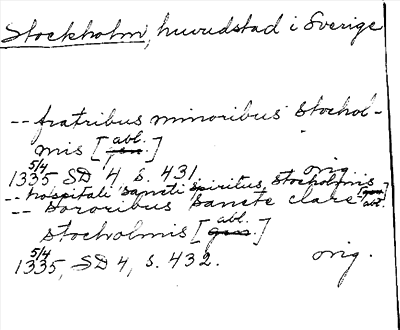 Stockholm, huvudstad i Sverige
-- fratribus minoribus stochol-
mis [abl.]
1335 5/4, SD 4, s. 431. orig.
-- hospitali sancti spiritus stocholmis [abl.]
-- sororibus sancte clare
stocholmis [abl.]
1335 5/4, SD 4, s. 432. orig.